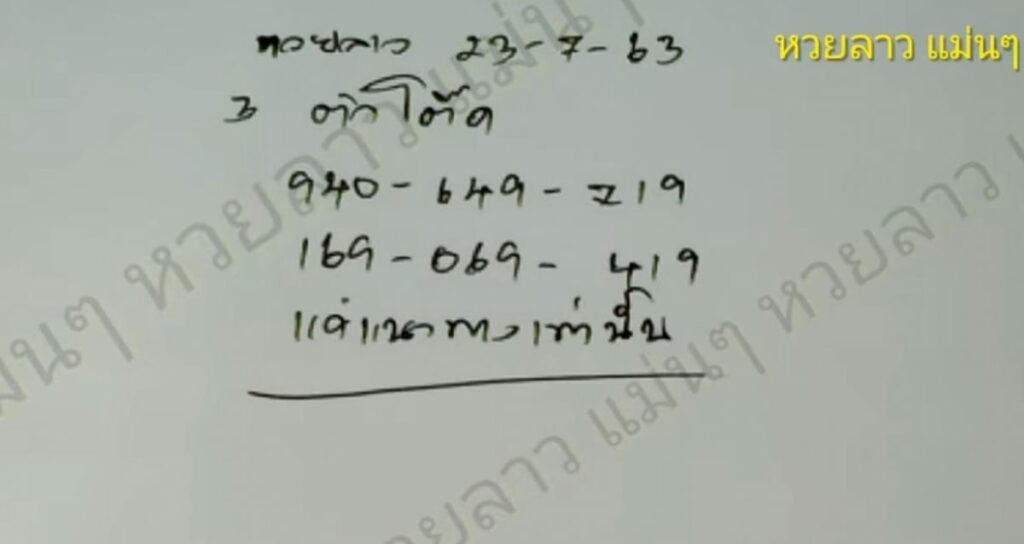 หวยลาว 23-7-63
หวยลาว แม่นๆ
3 ตัวโต๊ด
940 - 649 - 719
169 - 069 - 419
แค่แนวทางเท่านั้น
หวยลาว แม่นๆ
หวยลาว แม่นๆ